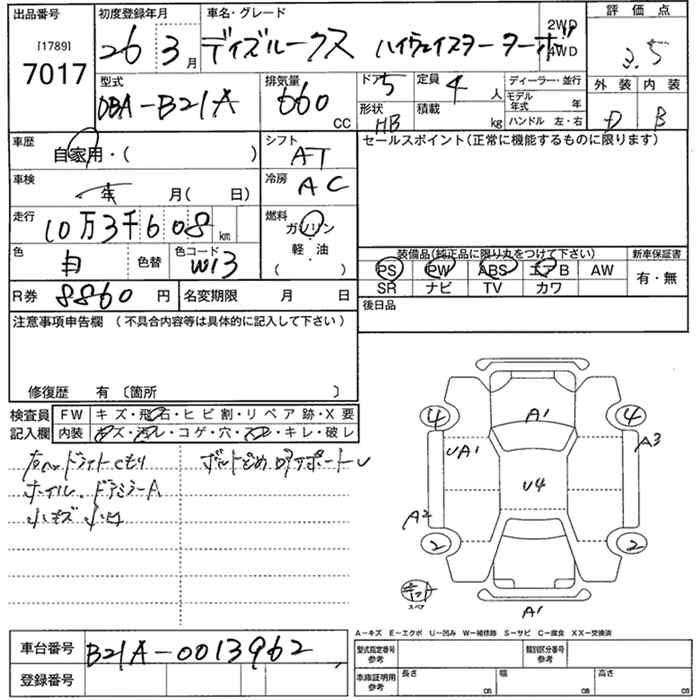 出品番号
[1789]
7017
初度登録年月
26 3月
車名・グレード
デイズルークス ハイウェイスターターボ
2WD
4WD
評価点
3.5
外装 内装
D B
型式
DBA-B21A
排気量
660 CC
ドア 5
定員 4 人
形状 HB
積載 kg
ディーラー・並行
モデル年式 年
ハンドル 左・右
車歴
自家用・( )
シフト
AT
セールスポイント(正常に機能するものに限ります)
車検
年 月( 日)
冷房
AC
走行
10万3千608km
燃料
ガソリン
軽・油
( )
色
白
色替
色コード
W13
装備品(純正品に限り丸をつけて下さい)
新車保証書
PS PW ABS エアB AW
SR ナビ TV カワ
有・無
R券 8860円
名変期限 月 日
後日品
注意事項申告欄 (不具合内容等は具体的に記入して下さい)
修復歴 有 〔箇所 〕
検査員記入欄
FW キズ・飛石・ヒビ割・リペア跡・X要
内装 キズ・汚レ・コゲ・穴・スレ・キレ・破レ
右ヘッドライトくもり
ホイル、ドアミラーA
小キズ 小凹
4 A1 4
UA1 A3
U4
A2
2 2
キット
スペア
A1
A−キズ E−エクボ U−凹み W−補修跡 S−サビ C−腐食 XX−交換済
車台番号 B21A-0013962
登録番号
型式指定番号 参考
類別区分番号 参考
車庫証明用 参考
長さ cm
幅 cm
高さ cm